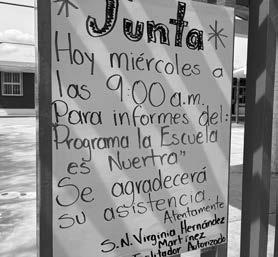 Junta
Hoy miércoles a
las 9:00 a.m.
Para informes del:
Programa la Escuela
es Nuertra"
Se agradecerá
su asistencia.
Atentamente
S.N. Virginia Hernández
Martínez
Facilitador Autorizado